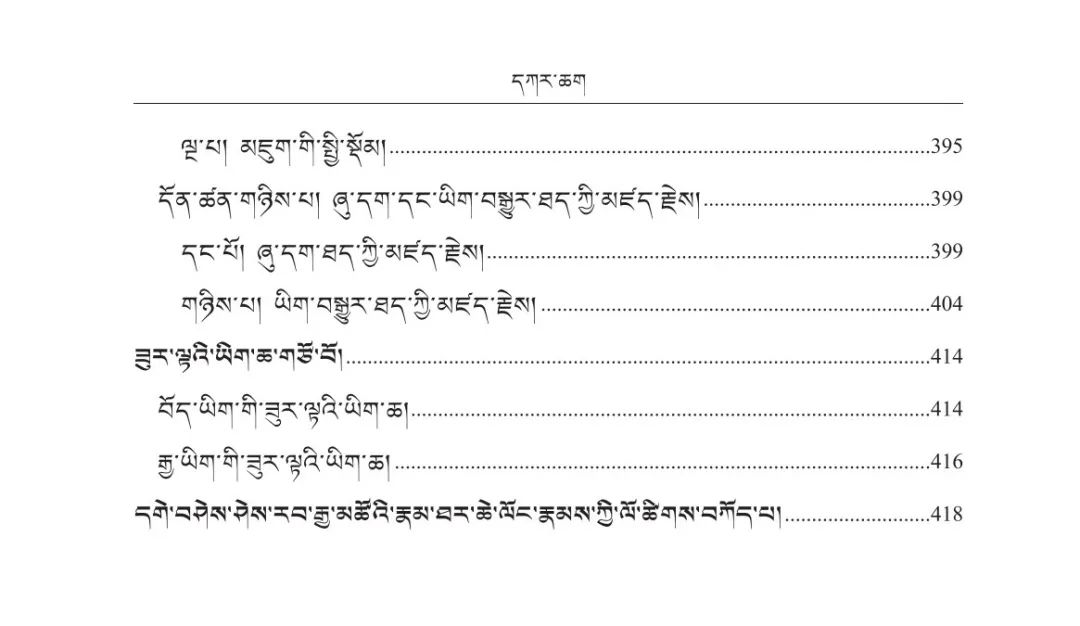 དཀར་ཆག
ལྔ་པ། མཇུག་གི་སྤྱི་སྡོམ།........................................395
དོན་ཚན་གཉིས་པ། ཞུ་དག་དང་ཡིག་བསྒྱུར་ཐད་ཀྱི་མཛད་རྗེས།........................................399
དང་པོ། ཞུ་དག་ཐད་ཀྱི་མཛད་རྗེས།........................................399
གཉིས་པ། ཡིག་བསྒྱུར་ཐད་ཀྱི་མཛད་རྗེས།........................................404
ཟུར་ལྟའི་ཡིག་ཆ་གཙོ་བོ།........................................414
བོད་ཡིག་གི་ཟུར་ལྟའི་ཡིག་ཆ།........................................414
རྒྱ་ཡིག་གི་ཟུར་ལྟའི་ཡིག་ཆ།........................................416
དགེ་བཤེས་ཤེས་རབ་རྒྱ་མཚོའི་རྣམ་ཐར་ཆེ་ལོང་རྣམས་ཀྱི་ལོ་ཚིགས་བཀོད་པ།........................................418